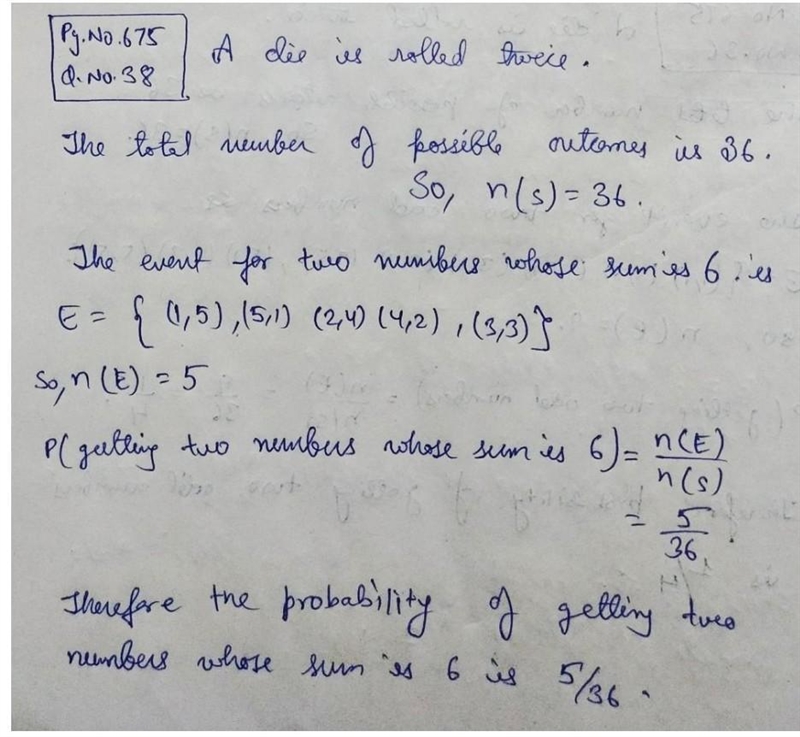 Pg.No.675
Q.No.38
A die is rolled twice.
The total number of possible outcomes is 36.
So, n(s) = 36.
The event for two numbers whose sum is 6 . is
E = { (1,5) ,(5,1) (2,4) (4,2) , (3,3)}
So, n(E) = 5
P(getting two numbers whose sum is 6) = n(E)/n(s)
= 5/36.
Therefore the probability of getting two
numbers whose sum is 6 is 5/36.